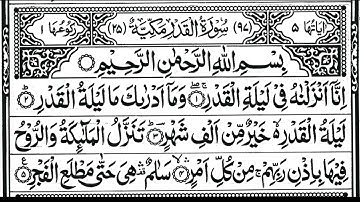 اٰیَاتُهَا ۵ (۹۷) سُوْرَةُ الْقَدْرِ مَكِّیَّةٌ (۲۵) رُكُوْعُهَا ۱
بِسْمِ اللّٰهِ الرَّحْمٰنِ الرَّحِیْمِ
اِنَّاۤ اَنْزَلْنٰهُ فِیْ لَیْلَةِ الْقَدْرِ ۚۖ﴿۱﴾ وَ مَاۤ اَدْرٰىكَ مَا لَیْلَةُ الْقَدْرِ ؕ﴿۲﴾
لَیْلَةُ الْقَدْرِ ۙ۬ خَیْرٌ مِّنْ اَلْفِ شَهْرٍ ؕ﴿۳﴾ تَنَزَّلُ الْمَلٰٓىِٕكَةُ وَ الرُّوْحُ
فِیْهَا بِاِذْنِ رَبِّهِمْ ۚ مِنْ كُلِّ اَمْرٍ ۙۛ﴿۴﴾ سَلٰمٌ ۛ۫ هِیَ حَتّٰى مَطْلَعِ الْفَجْرِ ﴿۵﴾